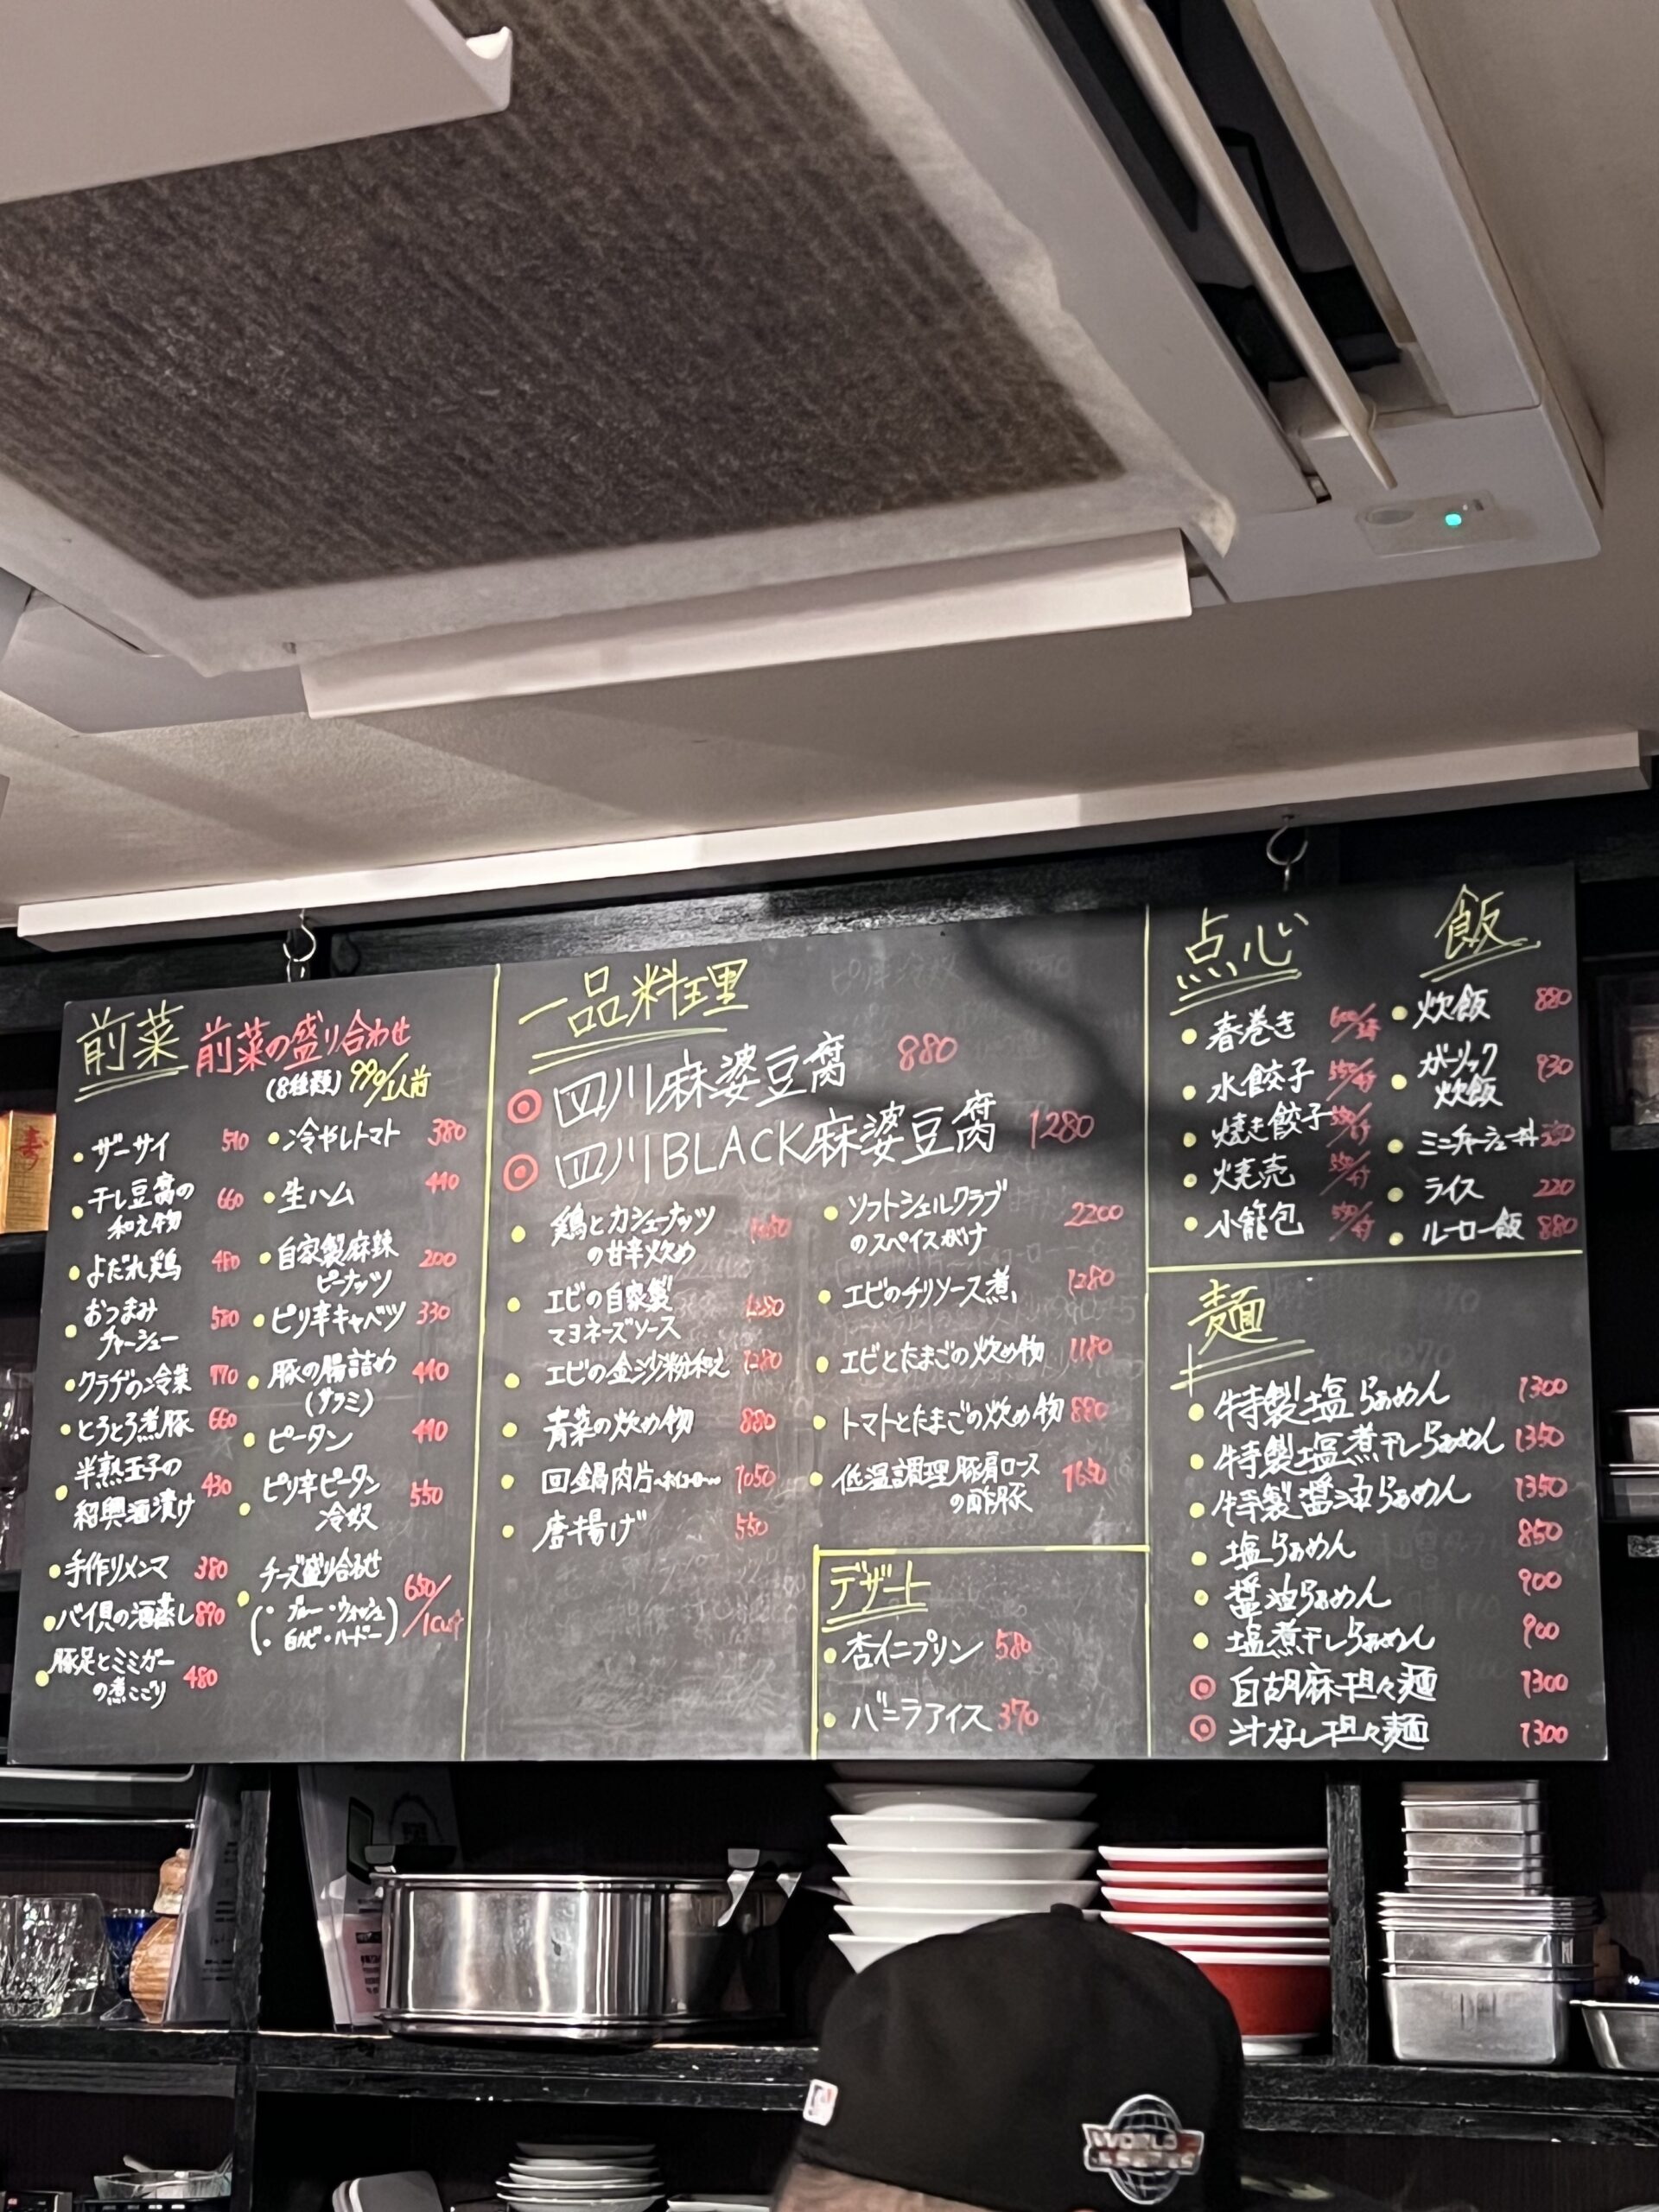 前菜
前菜の盛り合わせ
(8種類) 990/1人前
・ザーサイ 510
・干し豆腐の
和え物 660
・よだれ鶏 480
・おつまみ
チャーシュー 580
・クラゲの冷菜 770
・とろとろ煮豚 660
・半熟玉子の
紹興酒漬け 430
・手作りメンマ 380
・バイ貝の酒蒸し 890
・豚足とミミガー
の煮こごり 480
・冷やしトマト 380
・生ハム 440
・自家製麻辣
ピーナッツ 200
・ピリ辛キャベツ 330
・豚の腸詰め 440
(サラミ)
・ピータン 440
・ピリ辛ピータン
冷奴 550
・チーズ盛り合わせ
(・ブルー・ウォッシュ
・白カビ・ハード) 650/1cut
一品料理
◎四川麻婆豆腐 880
◎四川BLACK麻婆豆腐 1280
・鶏とカシューナッツ
の甘辛炒め
・エビの自家製
マヨネーズソース 1280
・エビの金沙粉和え 1280
・青菜の炒め物 880
・回鍋肉片〜ホイコーロー〜 1050
・唐揚げ 550
・ソフトシェルクラブ
のスペイスがけ 2200
・エビのチリソース煮 1280
・エビとたまごの炒め物 1180
・トマトとたまごの炒め物 880
・低温調理豚肩ロース
の酢豚 1650
デザート
・杏仁プリン 580
・バニラアイス 370
点心
・春巻き
・水餃子
・焼き餃子
・焼売
・小籠包
飯
・炒飯 880
・ガーリック
炒飯 930
・ミニチャーシュー丼
・ライス 220
・ルーロー飯 880
麺
・特製塩らぁめん 1300
・特製塩煮干しらぁめん 1350
・特製醤油らぁめん 1350
・塩らぁめん 850
・醤油らぁめん 900
・塩煮干しらぁめん 900
◎白胡麻担々麺 1300
◎汁なし担々麺 1300
寿
WORLD
SERIES